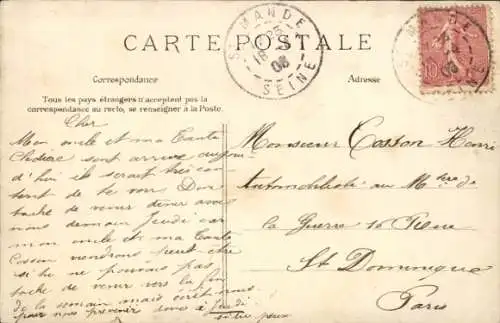 CARTE POSTALE
ST MANDE
SEINE
18
08
10
Correspondance
Adresse
Tous les pays étrangers n'acceptent pas la
correspondance au recto, se renseigner à la Poste.
Cher
Mon oncle et ma Tante
sont arrivé aujour
d'hui ils serait très con
tent de te voir Don
tache de venir diner avec
nous demain jeudi car
mon oncle et ma Tante
Cosson viendrons peut etre
si tu ne pouvais pas
tache de venir vers la fin
de la semaine mais ecrit nous
pour nous prevenir donc à jeudi
si tu peux
Monsieur Cosson Henri
Automobiliste au Mtère de
la Guerre 16 Rue
St Dominique
Paris